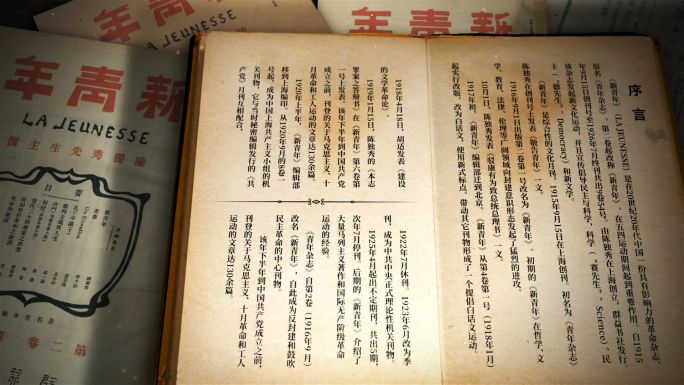 序言
《新青年》(LA JEUNESSE)是在20世纪20年代中国一份具有影响力的革命杂志，
原名《青年杂志》，第二卷起改称《新青年》。在五四运动期间起到重要作用。自1915
年9月15日创刊号至1926年7月终刊共出9卷54号。由陈独秀在上海创立，群益书社发行。
该杂志发起新文化运动，并且宣传倡导民主与科学科学（“赛先生”，Science）、民
主（“德先生”，Democracy）和新文学。
《新青年》是综合性的文化月刊，1915年9月15日在上海创刊，初名为《青年杂志》
陈独秀在创刊号上发表《敬告青年》一文。
1916年9月1日出版第二卷第一号改名为《新青年》。初期的《新青年》在哲学、文
学、教育、法律、伦理等广阔领域向封建意识形态发起了猛烈的进攻。
10月1日，陈独秀发表《驳康有为致总统总理书》一文。
1917年初，《新青年》编辑部迁到北京，《新青年》从第4卷第一号（1918年1月）
起实行改版，改为白话文，使用新式标点，带动其它刊物形成了一个提倡白话文运动。
1918年4月18日，胡适发表《建设
的文学革命论》。
1919年1月15日，陈独秀的《本志
罪案之答辩书》在《新青年》第六卷第
一号上发表。该年下半年到中国共产党
成立之前，刊登的关于马克思主义、十
月革命和工人运动的文章达130余篇。
1920年上半年，《新青年》编辑部
移到上海编印。从1920年9月的8卷一
号起，成为中国上海共产主义小组的机
关刊物，它与当时秘密编辑发行的《共
产党》月刊互相配合，
1922年7月休刊。1923年6月改为季
刊，成为中共中央正式理论性机关刊物。
1925年4月起出不定期刊，共出5期，
次年7月停刊。后期的《新青年》介绍了
大量马列主义著作和国际无产阶级革命
运动的经验。
《青年杂志》自第2卷（1916年9月）
改名《新青年》，自此成为反封建和鼓吹
民主革命的中心刊物。
该年下半年到中国共产党成立之前，
刊登的关于马克思主义、十月革命和工人
运动的文章达130余篇。
新青年
LA JEUNESSE
陳獨秀先生主
要目
第二卷第
新青年
LA JEUNESSE
年青
LA JEUNESSE